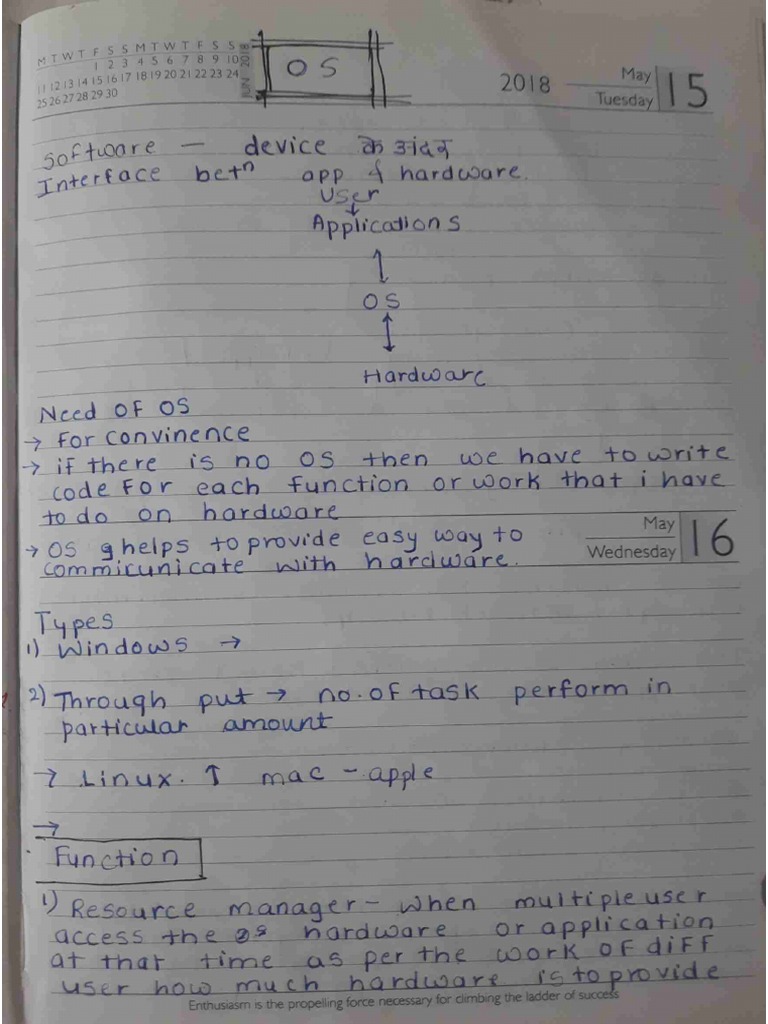 M T W T F S S M T W T F S S
1 2 3 4 5 6 7 8 9 10
11 12 13 14 15 16 17 18 19 20 21 22 23 24
25 26 27 28 29 30
JUN 2018
OS
2018 May 15
Tuesday
Software — device के अंदर
Interface betn app & hardware.
User
↓
Applications
↕
OS
↕
Hardware
Need OF OS
→ For convinence
→ if there is no OS then we have to write
code For each function or work that i have
to do on hardware
→ OS helps to provide easy way to
commicunicate with hardware.
May 16
Wednesday
Types
1) Windows →
2) Through put → no. of task perform in
particular amount
→ Linux. ↑ mac - apple
→
Function
1) Resource manager - when multiple user
access the os hardware or application
at that time as per the work of diff
user how much hardware is to provide
Enthusiasm is the propelling force necessary for climbing the ladder of success